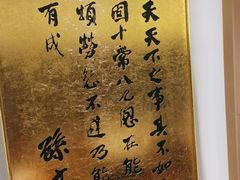 夫天下之事其不如
固十常八九總在能
煩勞怨不避乃能
有成
孫